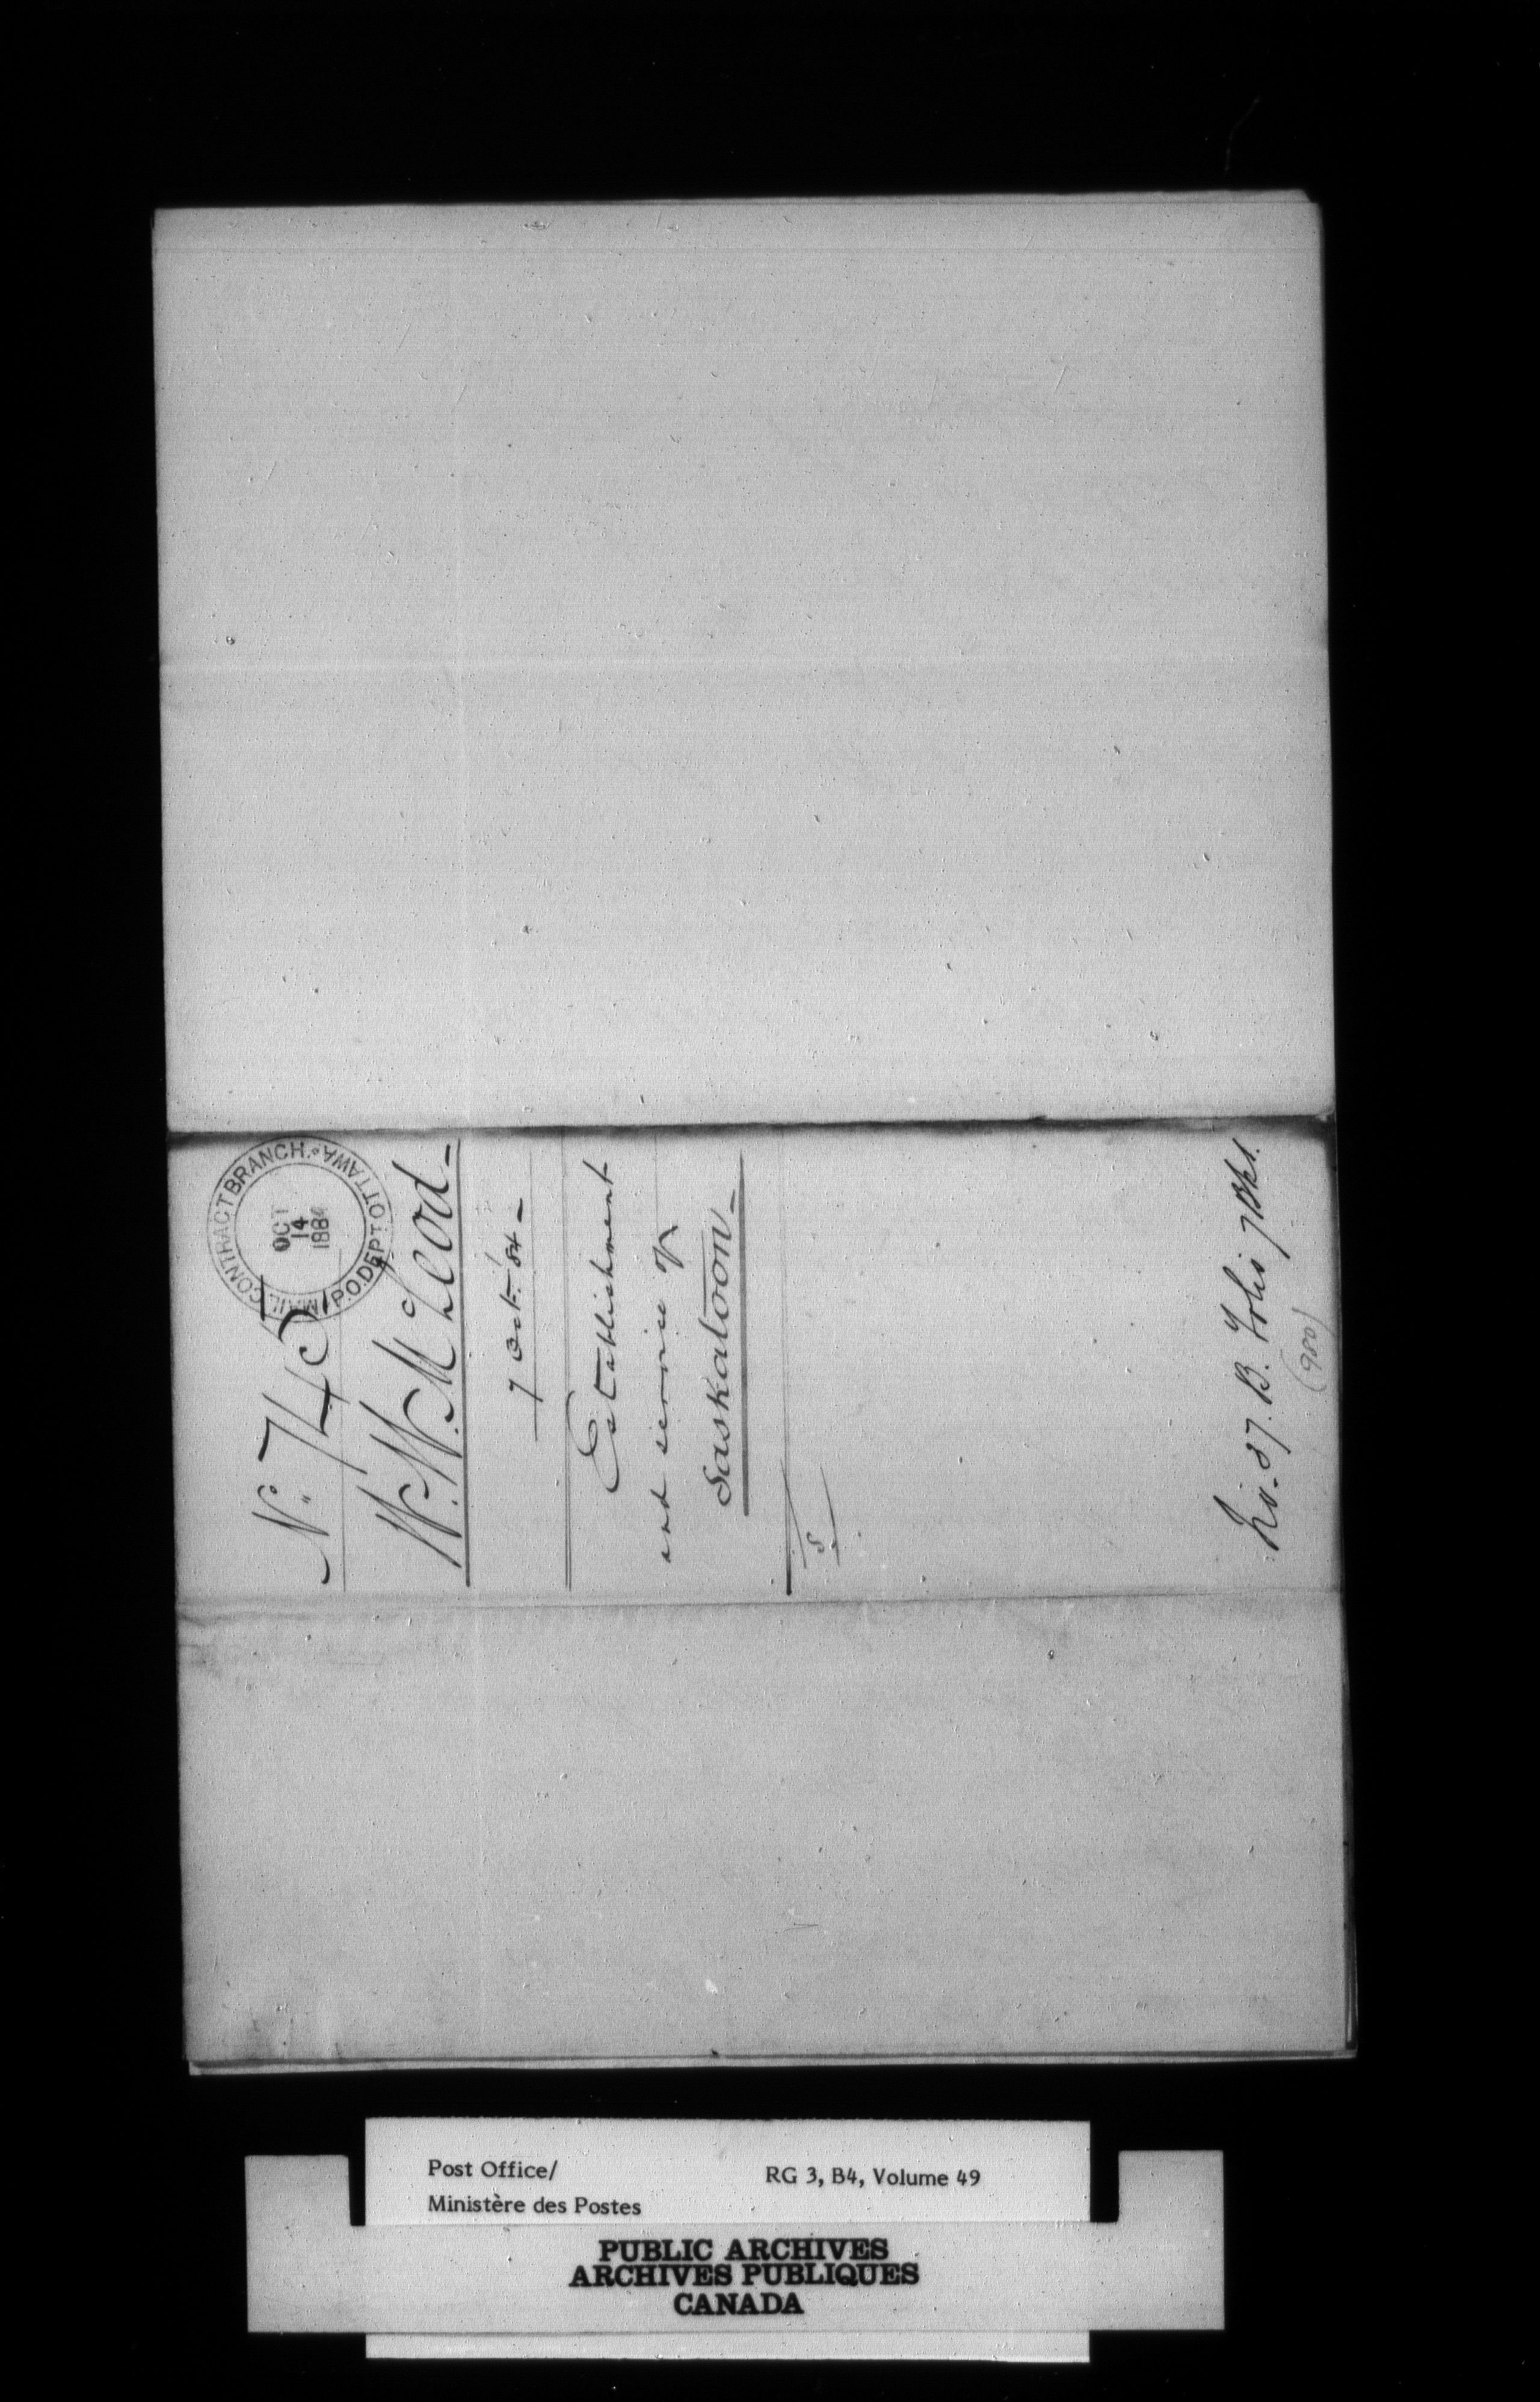 MAIL CONTRACT BRANCH.
P.O. DEPT OTTAWA.
OCT
14
1884
No. 745
W. W. McLeod-
7 Oct. '84-
Establishment
and service of
Saskatoon-
S.
87. B.
(980)
Post Office/
Ministère des Postes
RG 3, B4, Volume 49
PUBLIC ARCHIVES
ARCHIVES PUBLIQUES
CANADA